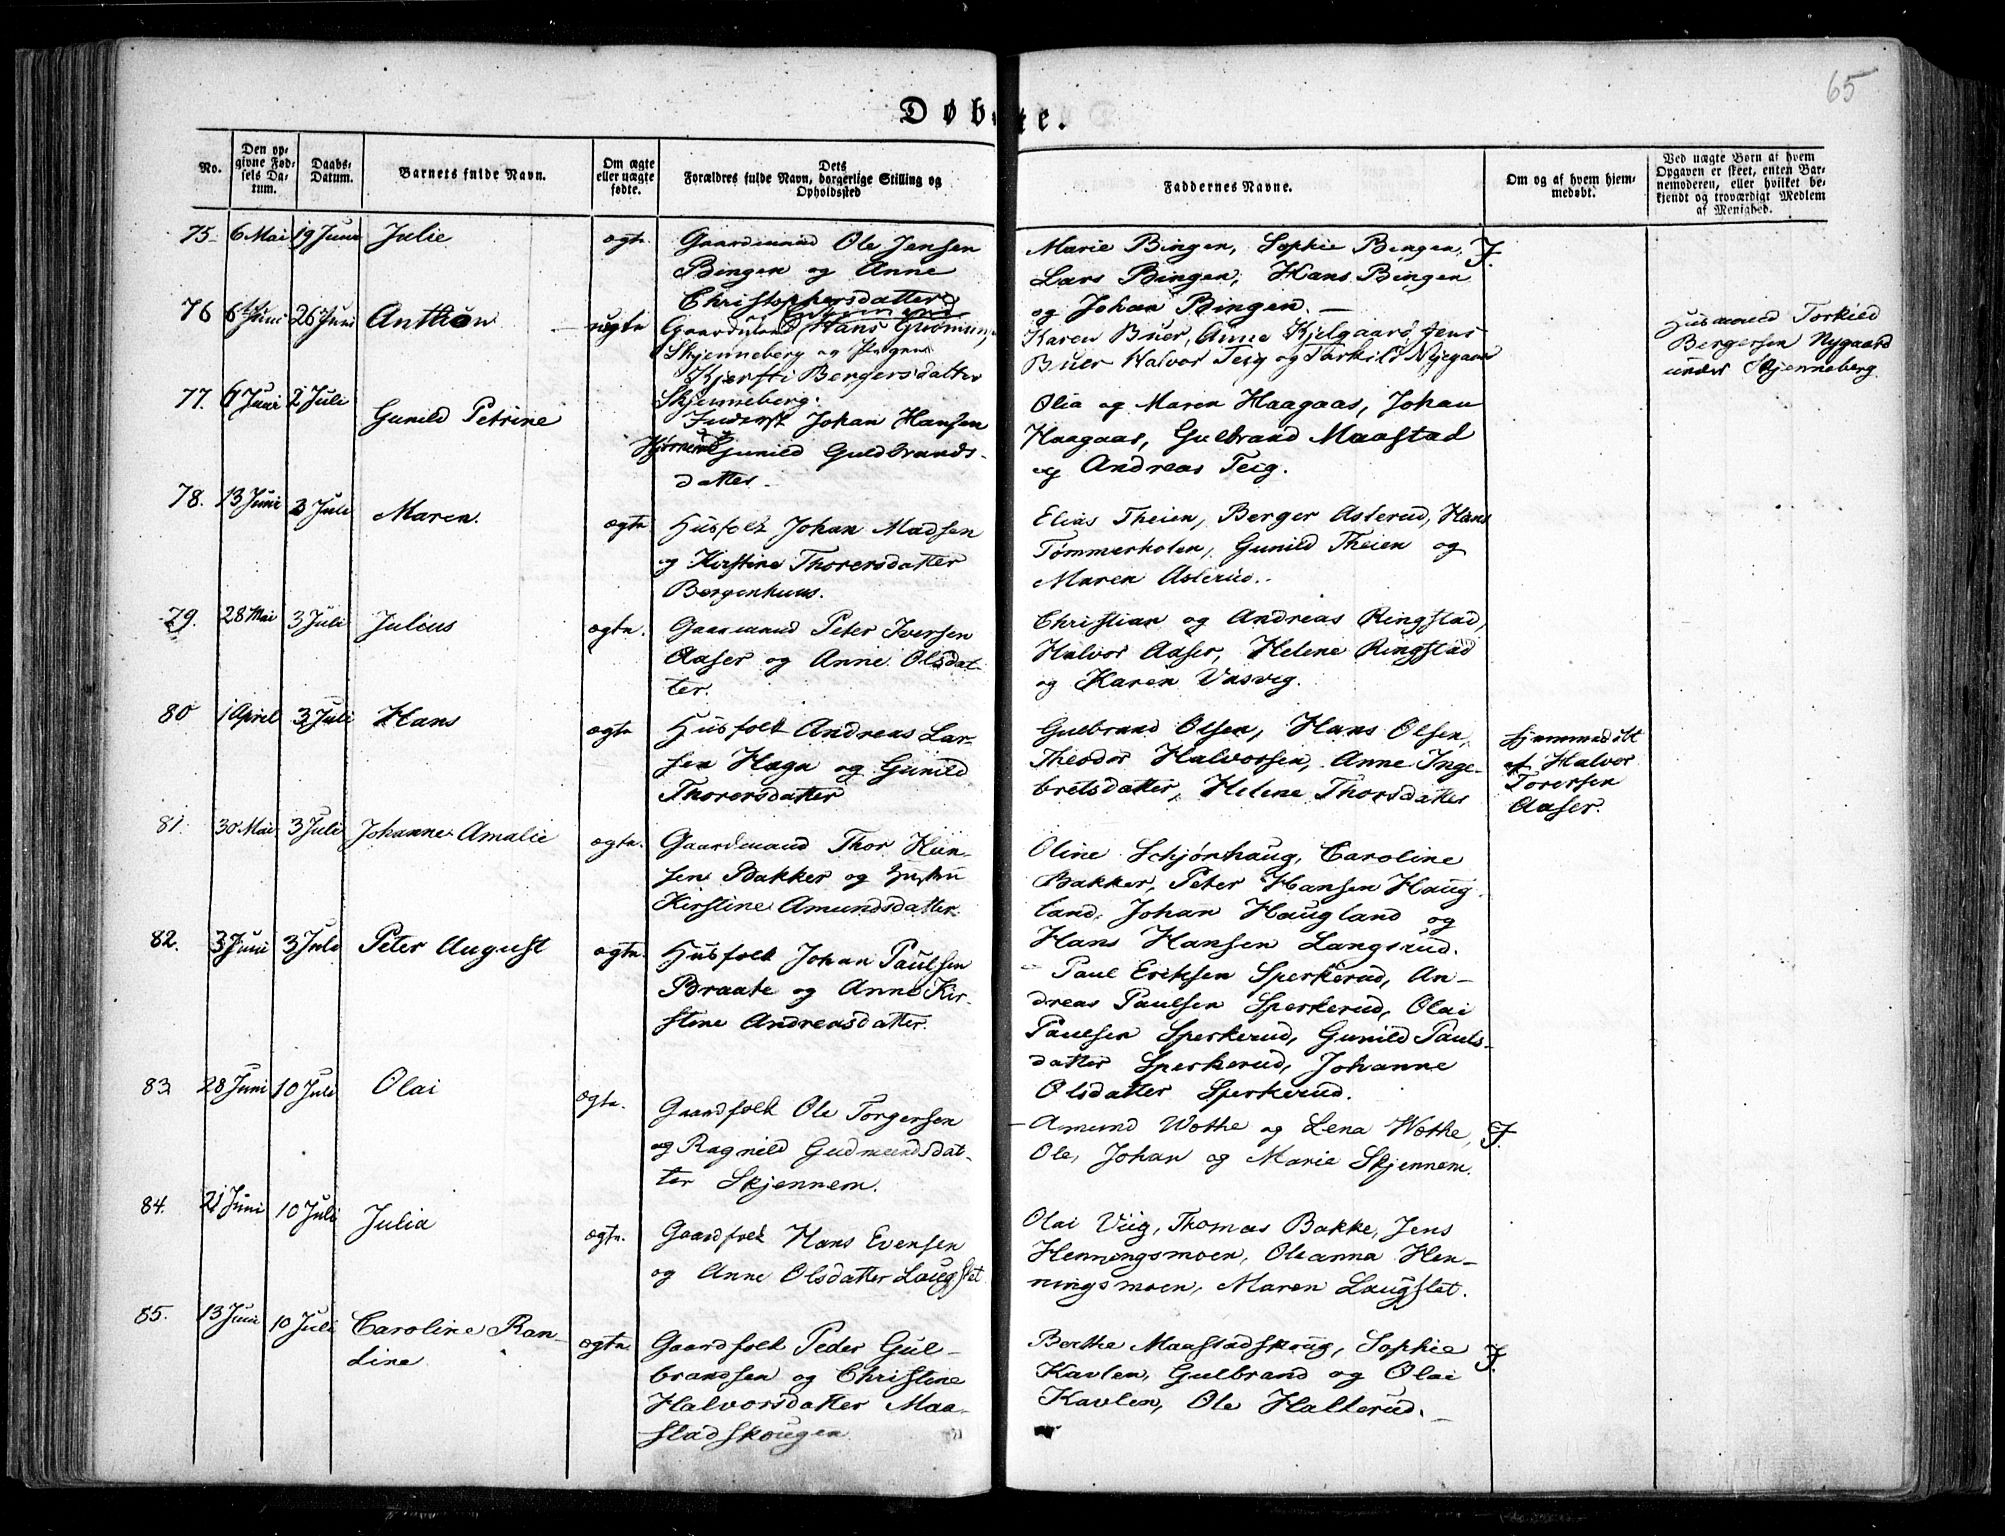 65
Døbte.
No.
Den op-
givne Fød-
sels Da-
tum.
Daabs-
Datum.
Barnets fulde Navn.
Om ægte
eller uægte
fødte.
Dets
Forældres fulde Navn, borgerlige Stilling og
Opholdssted
Faddernes Navne.
Om og af hvem hjem-
medøbt.
Ved uægte Børn af hvem
Opgaven er skeet, enten Bar-
nemoderen, eller hvilket be-
kjendt og troværdigt Medlem
af Menighed.
75 6 Mai 19 Juni Julie ægte
Gaardmand Ole Jensen
Bingen og Anne
Christophersdatter
Marie Bingen, Sophie Bingen,
Lars Bingen, Hans Bingen
og Johan Bingen.
76 6 Juni 26 Juni Anthon uægte
Gaardmand Hans
Skjenneberg og Pigen
Kjersti Bergersdatter
Skjenneberg.
Karen Buer, Anne Kjelgaard, Jens
Buer Halvor Teig og Torkild Nygaard
Husmand Torkild
Bergersen Nygaard
under Skjenneberg
77. 6 Juni 2 Juli Gunild Petrine
Inderst Johan Hansen
Gunild Guldbrands-
datter
Olia og Maren Haagaas, Johan
Haagaas, Gulbrand Maastad
og Andreas Teig.
78. 13 Juni 3 Juli Maren. ægte
Husfolk Johan Madsen
og Kirstine Thorersdatter
Bergenhuus.
Elias Theien, Berger Asterud, Hans
Tømmerholen, Gunild Theien og
Maren Asterud.
79. 28 Mai 3 Juli Julius ægte.
Gaardmand Peter Iversen
Aaser og Anne Olsdat-
ter.
Christian og Andreas Ringstad,
Halvor Aaser, Helene Ringstad
og Karen Vasvig.
80 1 April 3 Juli Hans ægte
Husfolk Andreas Lar-
sen Haga og Gunild
Thorersdatter
Gulbrand Olsen, Hans Olsen,
Theodor Halvorsen, Anne Inge-
bretsdatter, Helene Thorsdatter
Hjemmedøbt
af Halvor
Torersen
Aaser.
81. 30 Mai 3 Juli Johanne Amalie ægte.
Gaardmand Thor Han-
sen Bakker og Hustru
Kirstine Amundsdatter.
Oline Schjørhaug, Caroline
Bakker, Peter Hansen Haug-
land, Johan Haugland og
Hans Hansen Langsrud.
82. 3 Juni 3 Juli Peter August ægte.
Husfolk Johan Paulsen
Braate og Anne Kir-
stine Andreasdatter.
Paul Eriksen Sperkerud, An-
dreas Paulsen Sperkerud, Olai
Paulsen Sperkerud, Gunild Pauls-
datter Sperkerud, Johanne
Olsdatter Sperkerud.
83 28 Juni 10 Juli Olai ægte.
Gaardfolk Ole Torgersen
og Ragnild Gudmundsdat-
ter Skjennem.
Amund Wothe og Lena Wothe,
Ole, Johan og Marie Skjennem.
84. 21 Juni 10 Juli Julia ægte.
Gaardfolk Hans Evensen
og Anne Olsdatter Laugslet
Olai Viig, Thomas Bakke, Jens
Henningsmoen, Oleanna Hen-
ningsmoen, Maren Laugslet.
85. 13 Juni 10 Juli Caroline Ran-
dine ægte.
Gaardfolk Peder Gul-
brandsen og Christine
Halvorsdatter Maa-
stadskougen
Berthe Maastadskoug, Sophie
Kavlen, Gulbrand og Olai
Kavlen, Ole Halterud.